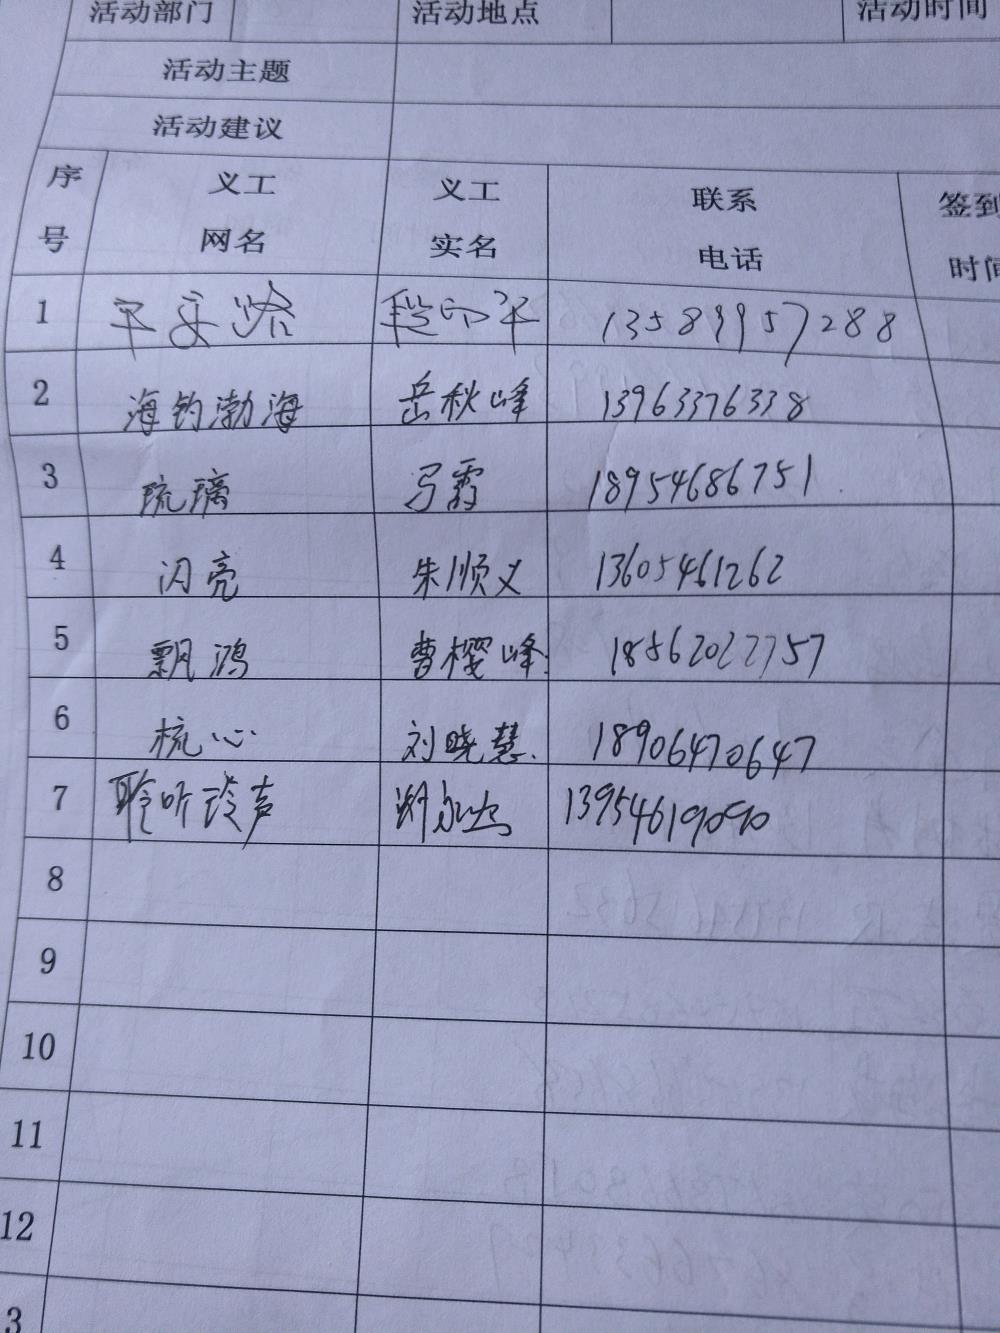 活动部门 活动地点 活动时间
活动主题
活动建议
序号 义工网名 义工实名 联系电话 签到时间
1 平安 13589957288
2 海钓渤海 岳秋峰 13963376338
3 琉璃 马霞 18954686751
4 闪亮 朱顺义 13605461262
5 飘鸿 曹樱峰 18562022757
6 梳心 刘晓慧 18906470647
7 聆听 声 13954619090
8
9
10
11
12
3